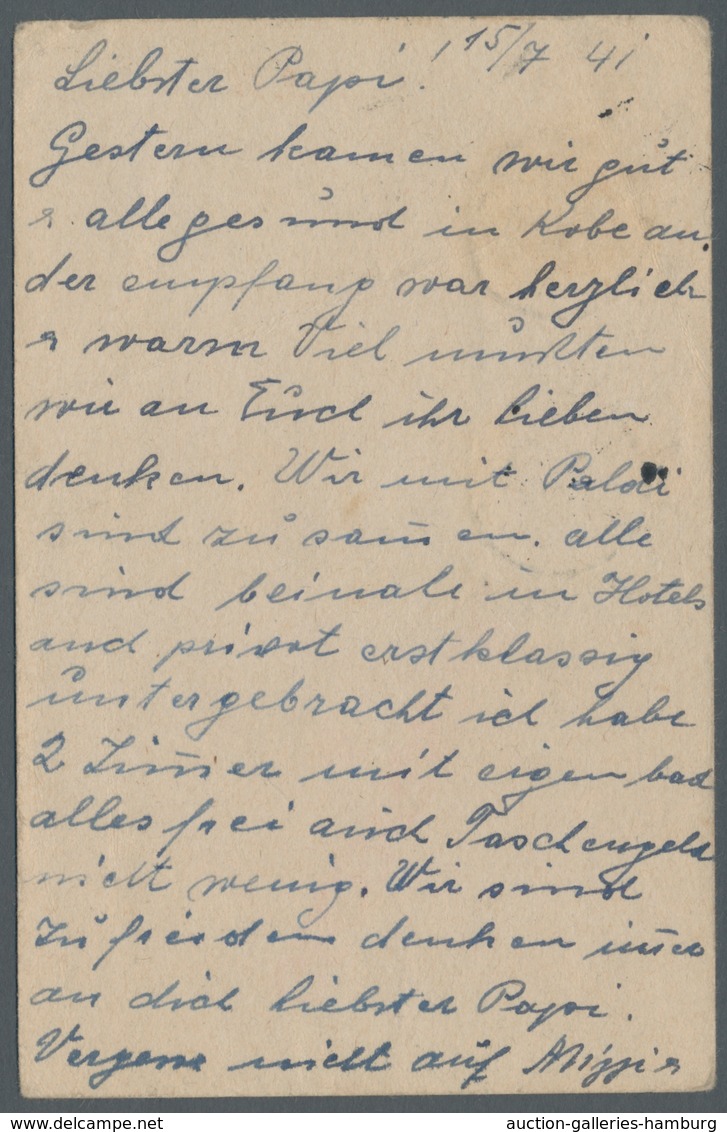 Liebster Papi! 15/7 41
Gestern kamen wir gut
& alle gesund in Kobe an.
der empfang war herzlich
& warm Viel mußten
wir an Euch ihr lieben
denken. Wir mit
sind zusam̅en. alle
sind beinale in Hotels
und privat erstklassig
untergebracht ich habe
2 Zim̅er mit eigen bad
alles frei auch Taschengeld
nicht wenig. Wir sind
zufrieden denken im̅er
an dich liebster Papi.
Vergess nicht auf &
auction-galleries-hamburg